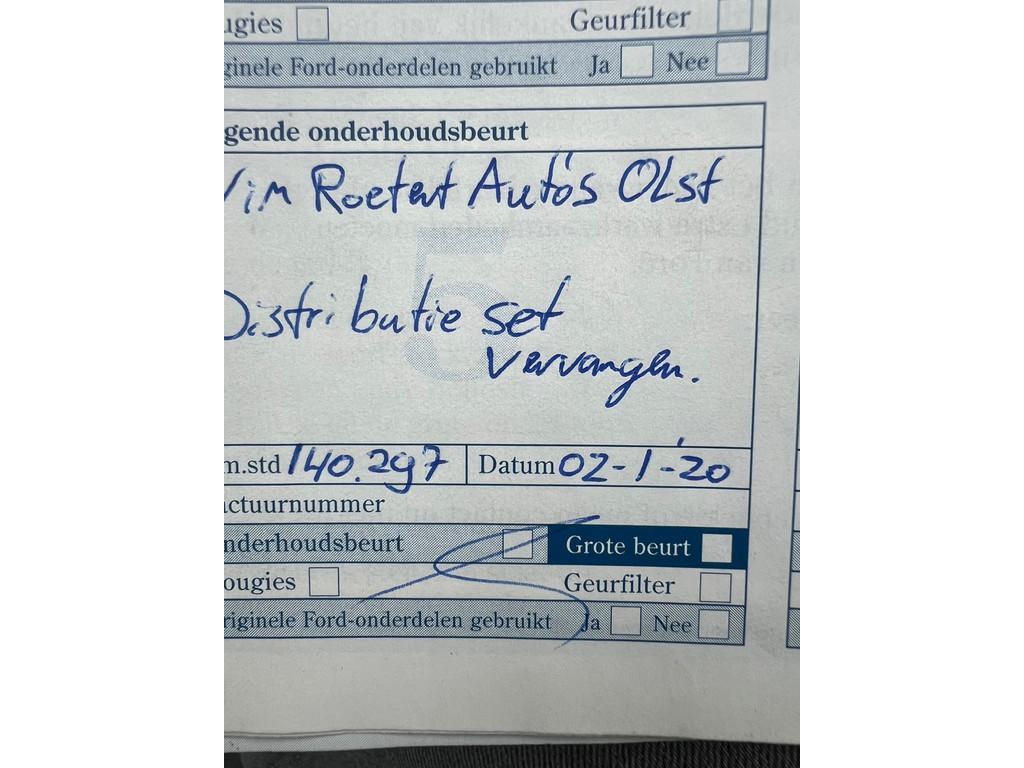 ugies Geurfilter
ginele Ford-onderdelen gebruikt Ja Nee
gende onderhoudsbeurt
im Roetert Auto's Olst
5
Distributie set
vervangen.
m.std 140.297 Datum 02-1-'20
actuurnummer
nderhoudsbeurt Grote beurt
ougies Geurfilter
riginele Ford-onderdelen gebruikt Ja Nee